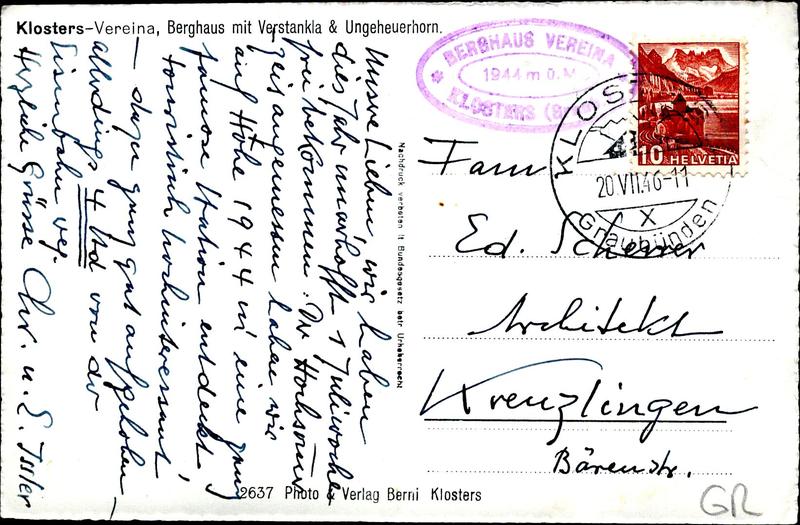 Klosters-Vereina, Berghaus mit Verstankla & Ungeheuerhorn.
BERGHAUS VEREINA
1944 m ü. M.
KLOSTERS
10 HELVETIA
KLOSTERS
20 VII.46-11
X
Graubünden
Unsere Lieben, wir haben
dies Jahr unverhofft 1 Juliwoche
frei bekommen. Der Hochsonnen
zeit angemessen haben wir
auf Höhe 1944 m eine ganz
famose Station entdeckt,
touristisch hochinteressant,
— dazu ganz gut aufgehoben,
allerdings 4 Std von der
Eisenbahn weg.
Herzliche Grüsse Chr. u. E.
Nachdruck verboten lt Bundesgesetz betr Urheberrecht
Fam
Ed. Scherrer
Architekt
Kreuzlingen
Bärenstr.
2637 Photo & Verlag Berni Klosters
GR